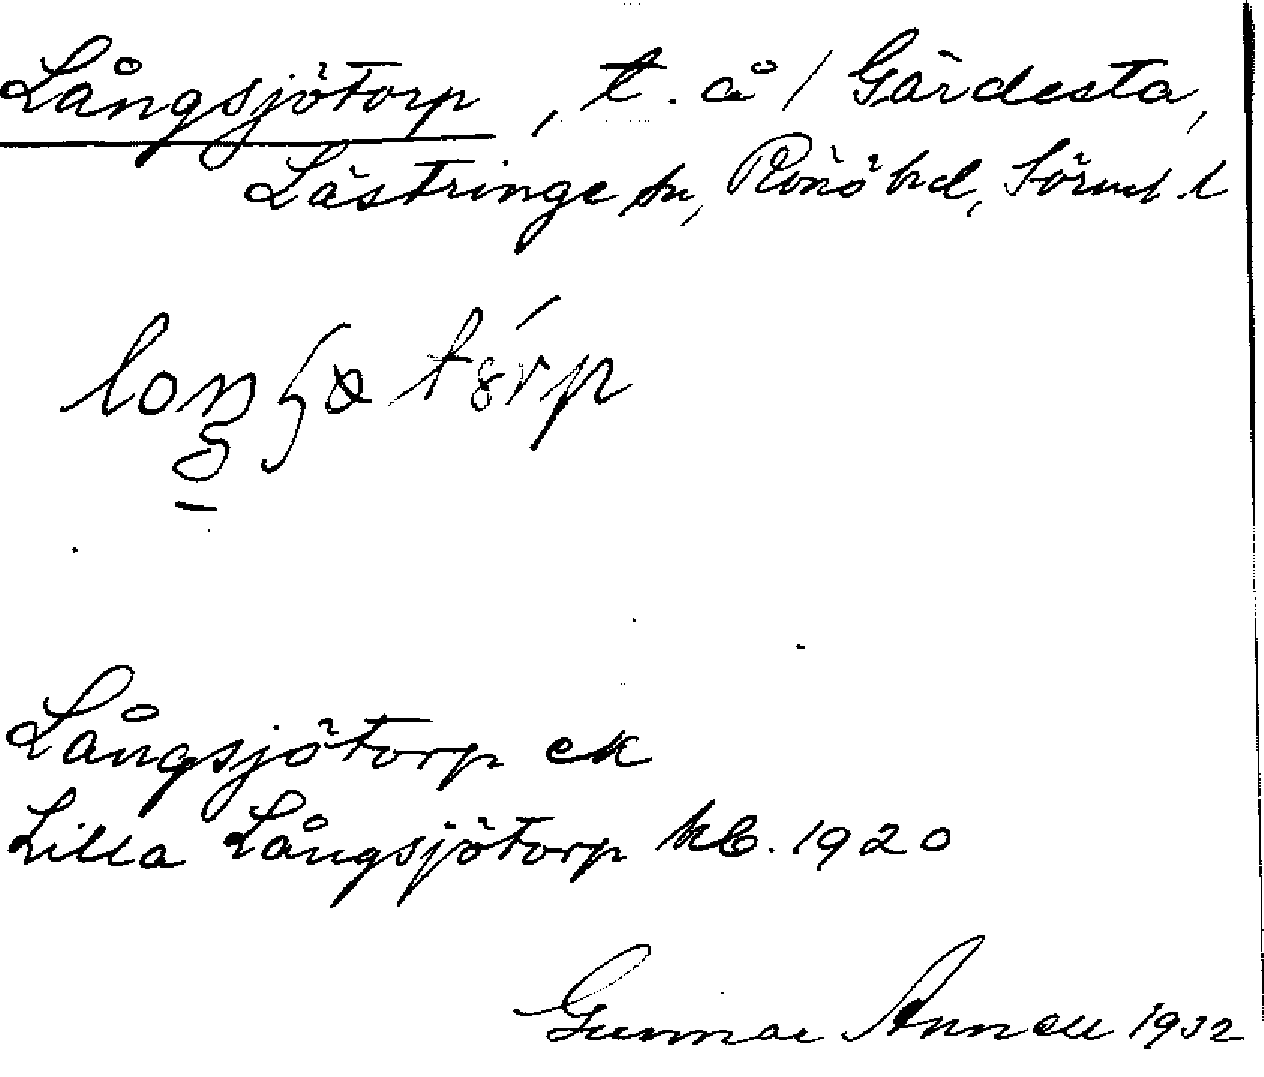 Långsjötorp, t. å / Gärdesta,
Lästringe sn, Rönö hd, Sörml. l
Långsjötorp ek
Lilla Långsjötorp kb. 1920
Gunnar Annell 1932